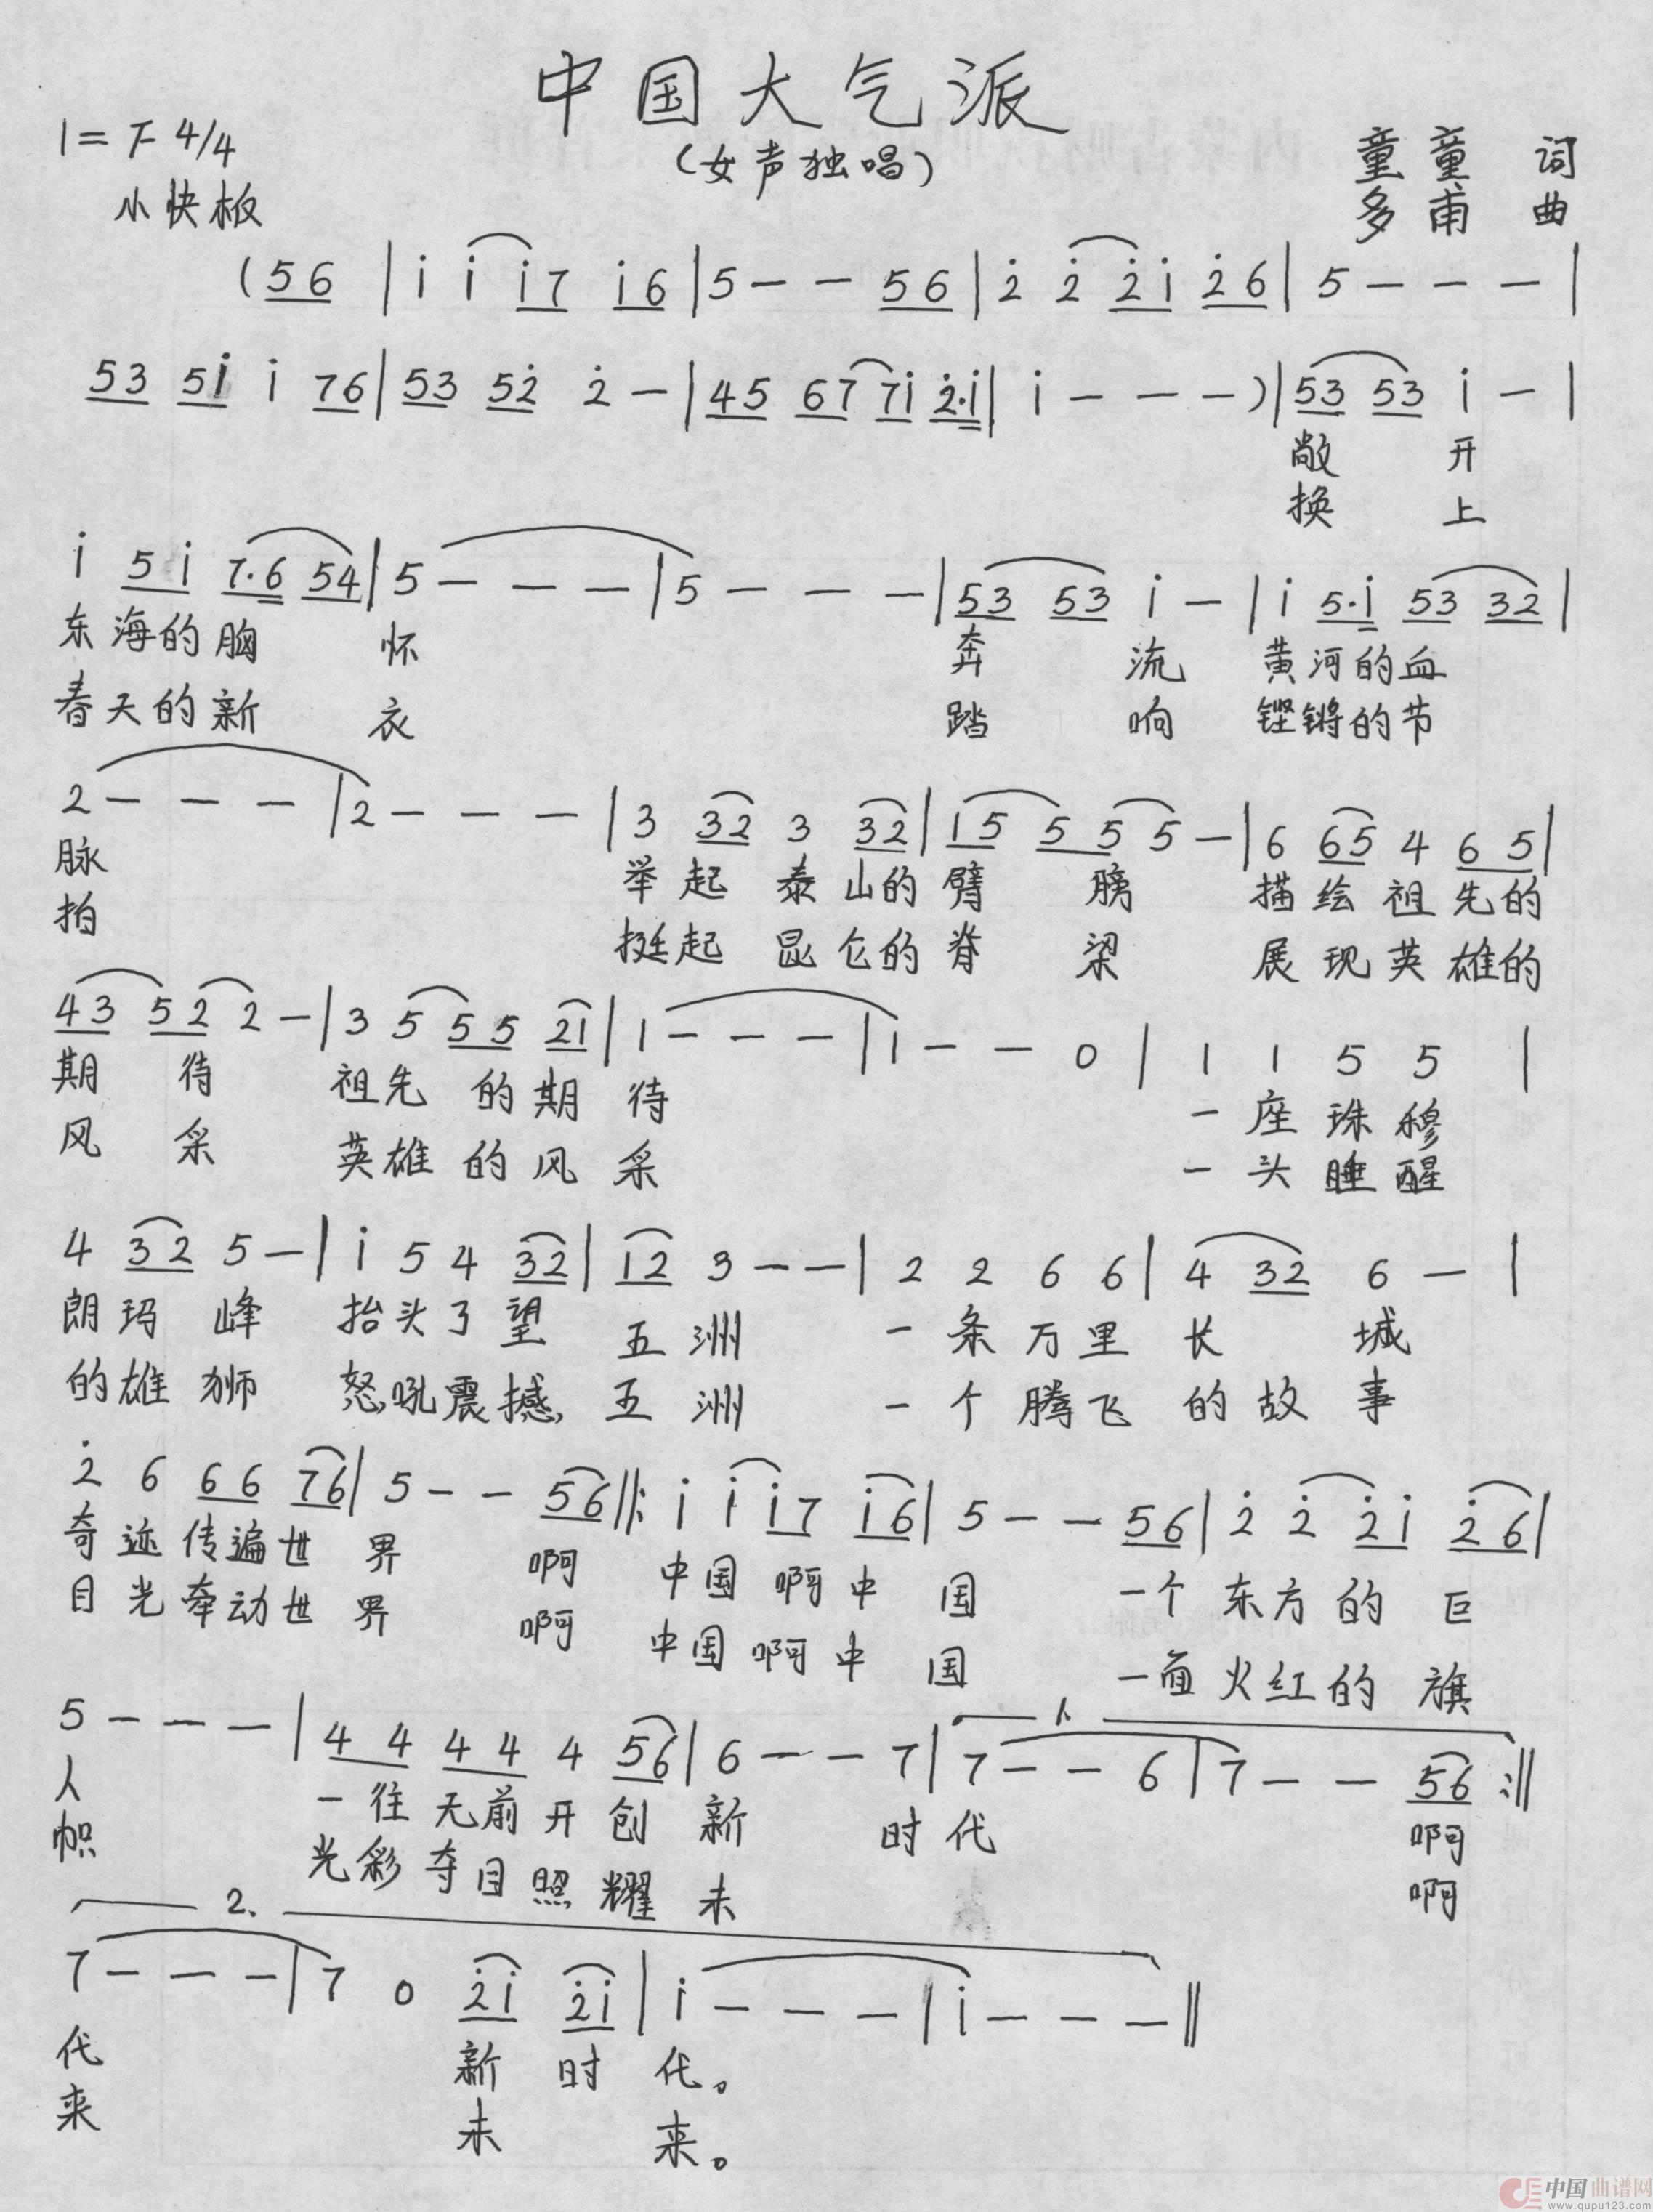 中国大气派
1=F 4/4
(女声独唱)
童童 词
小快板
多甫 曲
(56 | i i i7 i6 | 5 - - 56 | 2̇ 2̇ 2̇i 2̇6 | 5 - - - |
53 5i i 76 | 53 52̇ 2̇ - | 45 67 7i 2̇·i | i - - - ) | 53 53 i - |
敞 开
换 上
i 5i 7·6 54 | 5 - - - | 5 - - - | 53 53 i - | i 5·i 53 32 |
东海的胸 怀 奔 流 黄河的血
春天的新 衣 踏 响 铿锵的节
2 - - - | 2 - - - | 3 32 3 32 | 15 55 5 - | 6 65 4 65 |
脉 举起 泰山的臂 膀 描绘祖先的
拍 挺起 昆仑的脊 梁 展现英雄的
43 52 2 - | 3 5 55 21 | 1 - - - | 1 - - 0 | 1 1 5 5 |
期 待 祖先 的期 待 一座珠穆
风 采 英雄 的风 采 一头睡醒
4 32 5 - | i 5 4 32 | 12 3 - - | 2 2 6 6 | 4 32 6 - |
朗玛 峰 抬头了望 五洲 一条万里 长 城
的雄狮 怒吼震撼 五洲 一个腾飞 的故事
2̇ 6 66 76 | 5 - - 56 ‖: i i i7 i6 | 5 - - 56 | 2̇ 2̇ 2̇i 2̇6 |
奇迹传遍世 界 啊 中国 啊中 国 一个 东方的 巨
目光牵动世 界 啊 中国 啊中 国 一面 火红的 旗
5 - - - | 44 44 4 56 | 6 - - 7 | 1. 7 - - 6 | 7 - - 56 :‖
人 一往无前开创 新 时代 啊
帜 光彩夺目照耀 未 啊
2.
7 - - - | 7 0 2̇i 2̇i | i - - - | i - - - ‖
代 新 时 代。
来 未 来。
中国曲谱网
www.qupu123.com